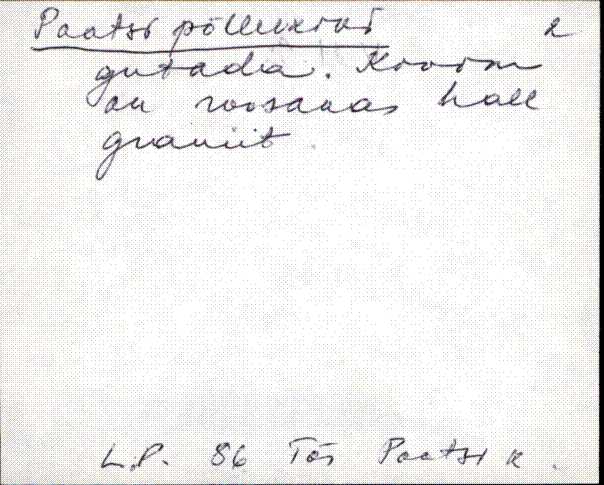 Paatsi põllukivi 2
gutada. Kivim
on roosakas hall
graniit.
L.P. 86 Tõs Paatsi k.